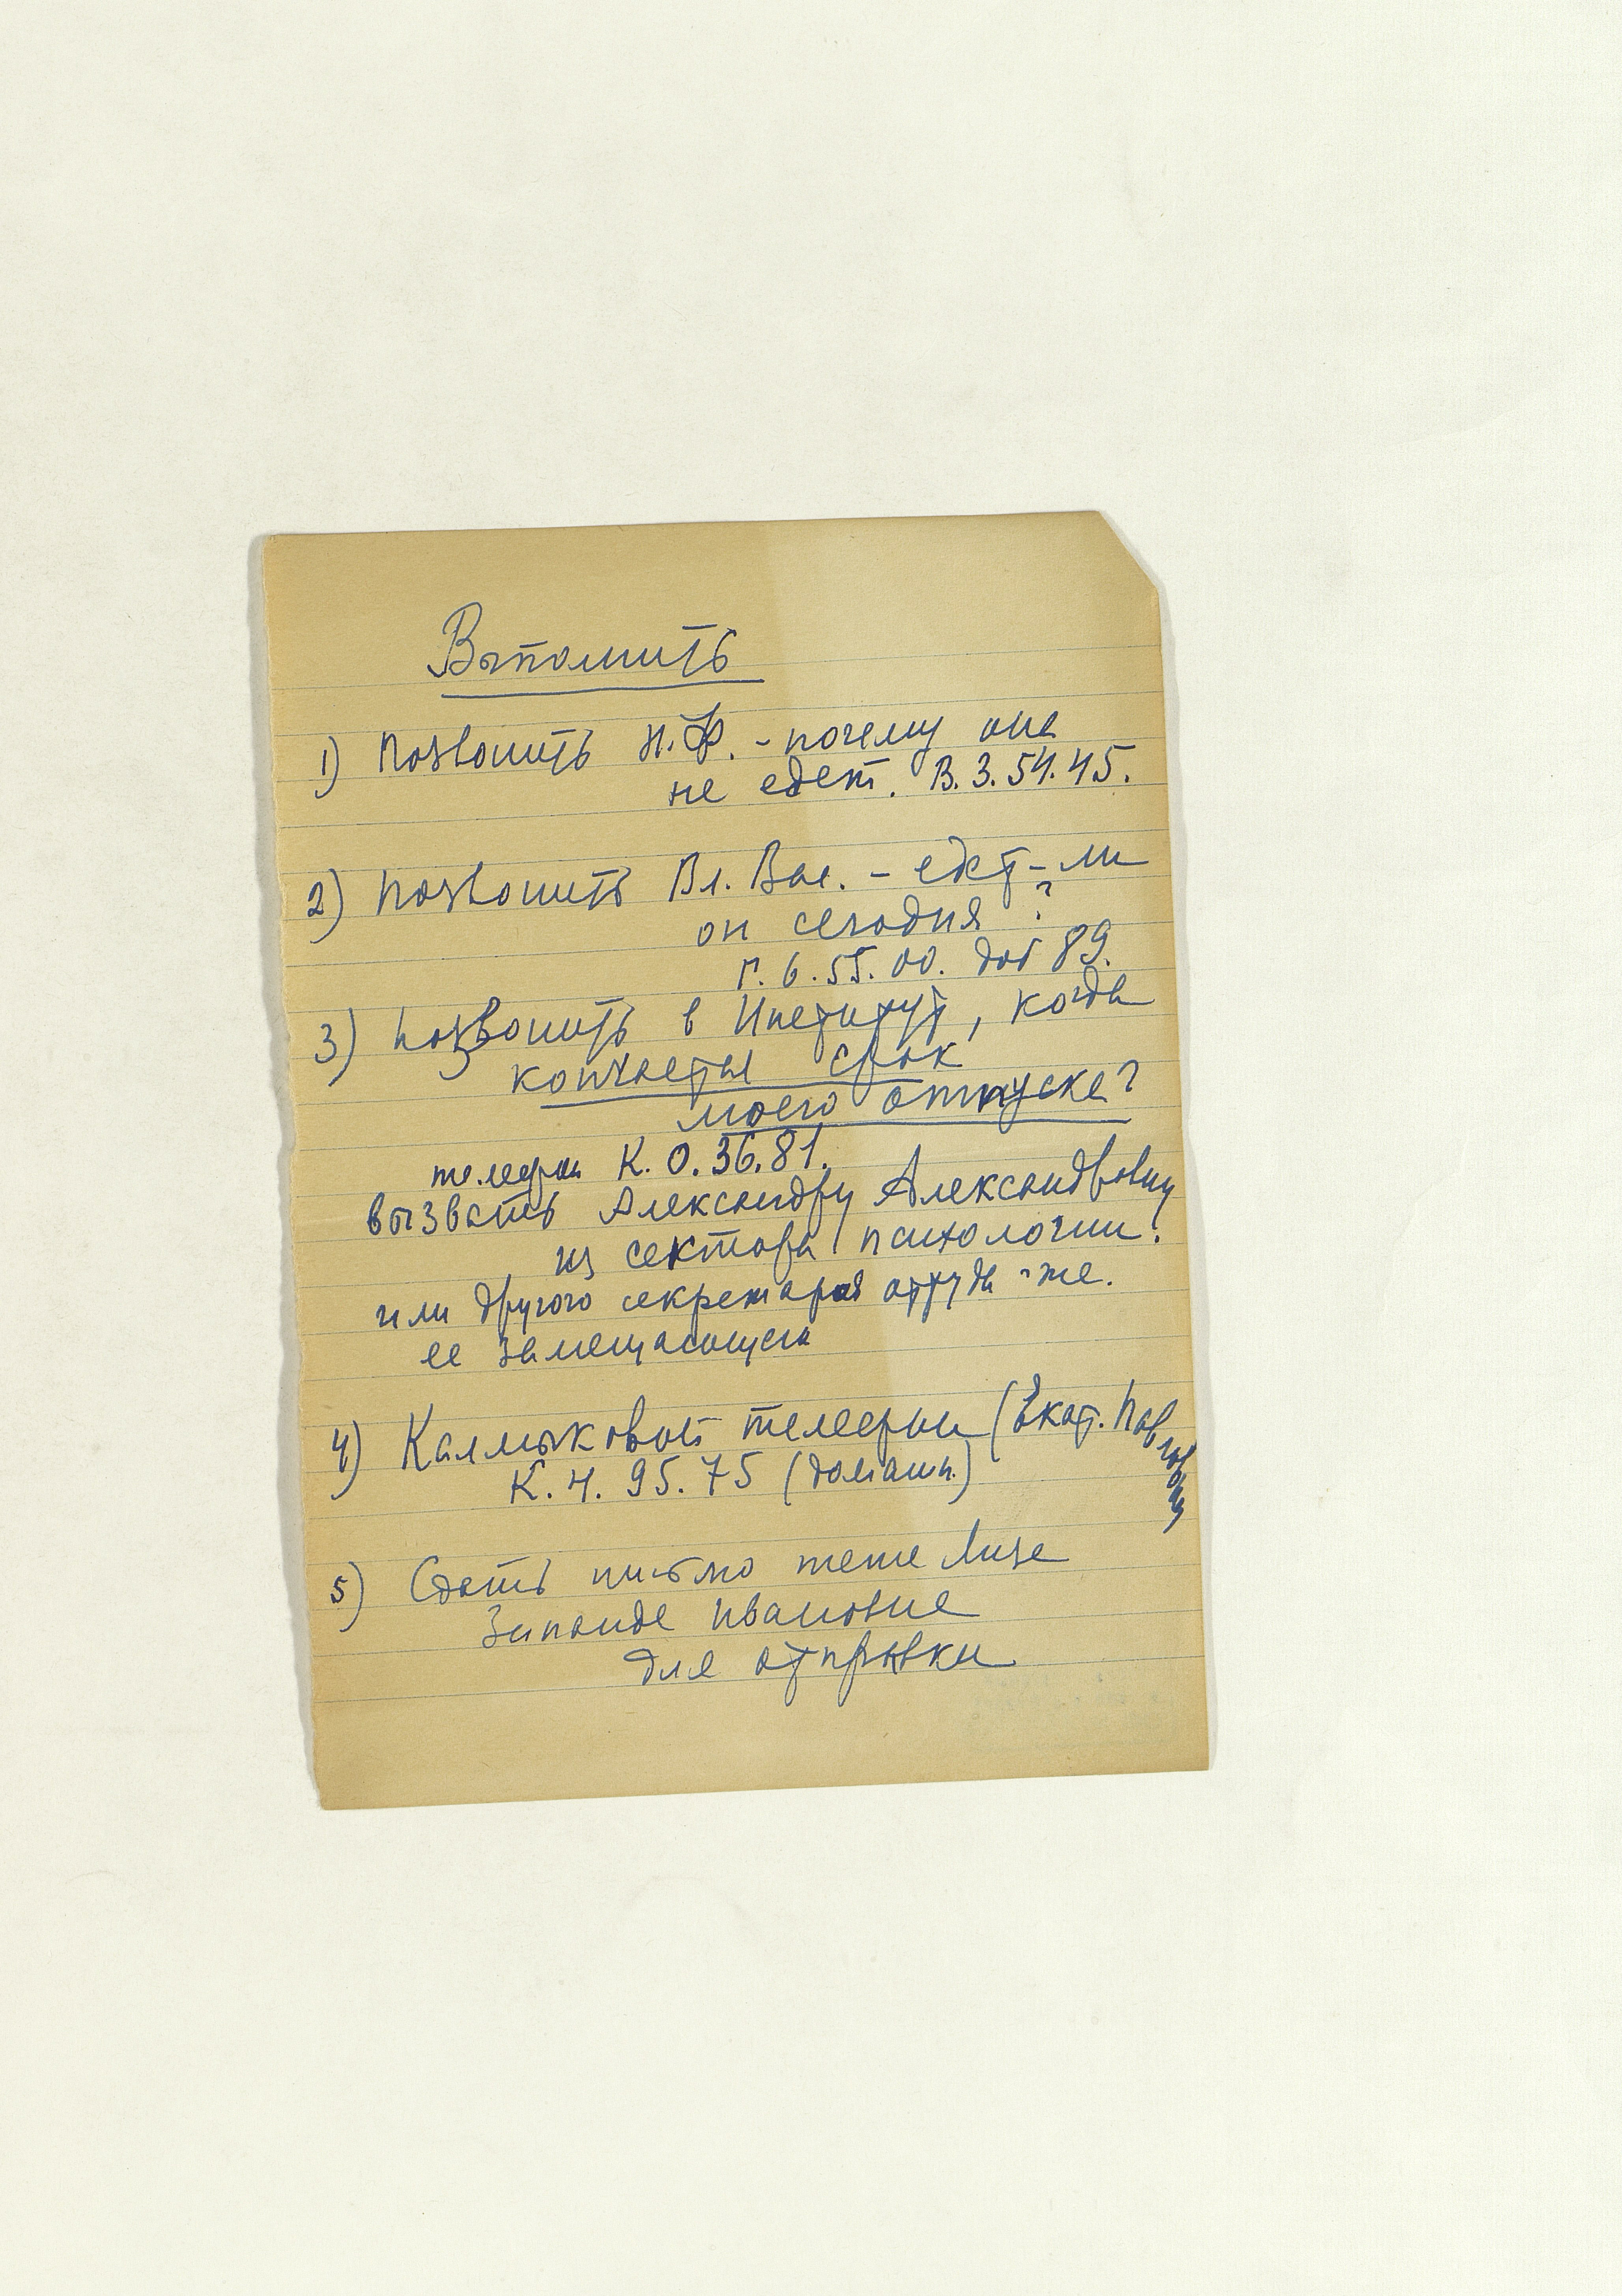 Выполнить
1) Позвонить Н.Ф. - почему она
не едет. В.3.54.45.
2) Позвонить Вл. Вас. - едет-ли
он сегодня ?
Г. 6. 55. 00. доб 89.
3) Позвонить в Институт, когда
кончается срок
моего отпуска?
телефон К. 0. 36. 81.
вызвать Александру Александровну
из сектора психологии.
или другого секретаря оттуда-же.
ее замещающего
4) Калмыковой телефон (Екат. Павловны
К. 4. 95. 75 (домашн.)
5) Сдать письмо тете Лизе
Зинаиде Ивановне
для отправки